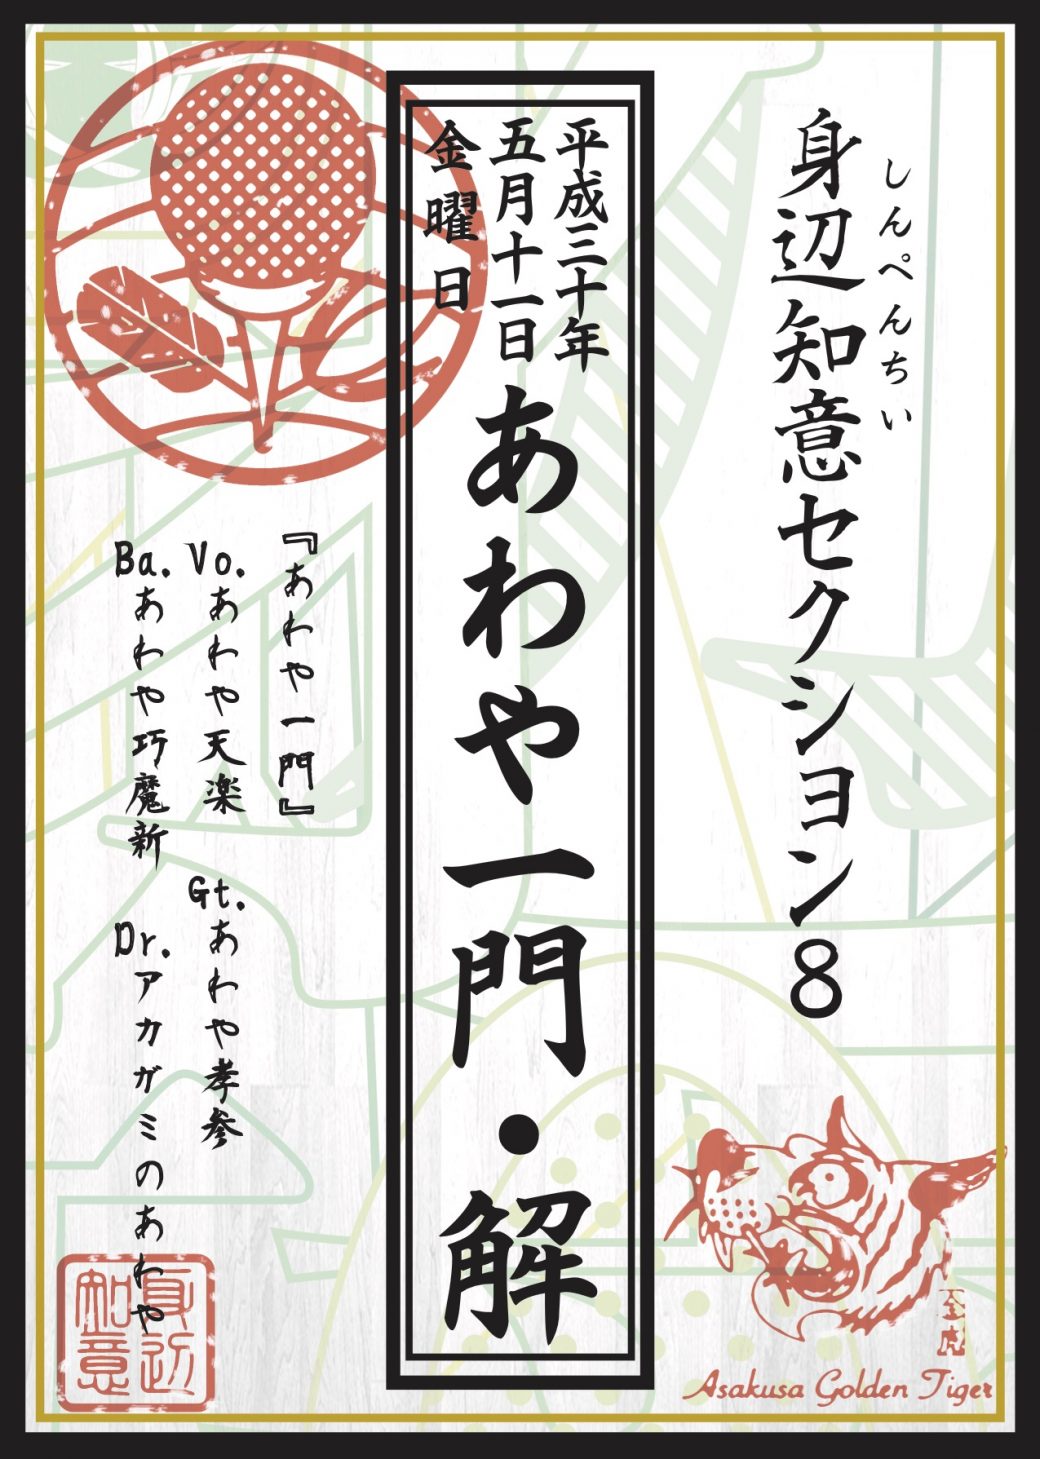 しんぺんちい
身辺知意セクション8
平成三十年
五月十一日
金曜日
あわや一門・解
『あわや一門』
Vo.あわや天楽 Gt.あわや孝参
Ba.あわや巧魔新 Dr.アカガミのあわや
身近
知意
金虎
Asakusa Golden Tiger